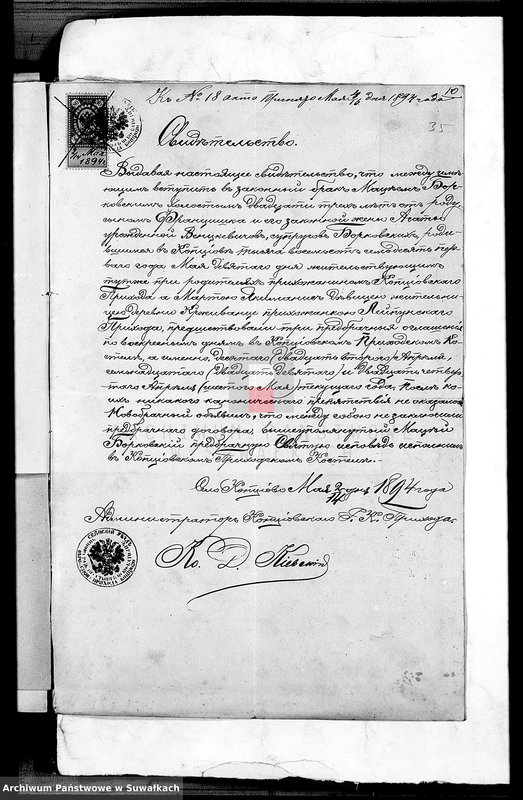 Къ № 18 акта Мая 4/16 дня 1894 года
10
35
Мая
1894
Свидѣтельство.
Выдавая настоящее свидѣтельство, что между имѣ-
ющимъ вступить въ законный бракъ Мацѣемъ Бор-
ковскимъ холостымъ двадцати трехъ лѣтъ отъ роду,
сыномъ Францишка и его законной жены Агаты
урожденной супруговъ Борковскихъ, роди-
вшимся въ Копціовѣ тысяча восемьсотъ семьдесятъ пер-
ваго года Мая девятаго дня жительствующимъ
тутже при родителяхъ прихожаниномъ Копціовскаго
Прихода а Мартою дѣвицею жительни-
цею деревни прихожанкою Лейпунскаго
Прихода, предшествовали три предбрачныя оглашенія
по воскреснымъ днямъ въ Копціовскомъ Приходскомъ Ко-
стелѣ, а именно, десятаго (двадцать втораго) Апрѣля,
семнадцатаго (двадцать девятаго) и двадцать четвер-
таго Апрѣля (шестаго Мая) текущаго года. Послѣ ко-
ихъ никакого каноническаго препятствія не оказалось
Новобрачный объявилъ, что между собою не заключили
предбрачнаго договора; вышеупомянутый Мацѣй
Борковскій предбрачную Святую исповѣдь исполнилъ
въ Копціовскомъ Приходскомъ Костелѣ.
Село Копціово Мая 2/14 дня 1894 года
Администраторъ Копціовскаго Р. К. Прихода
Кс. Д.
Archiwum Państwowe w Suwałkach